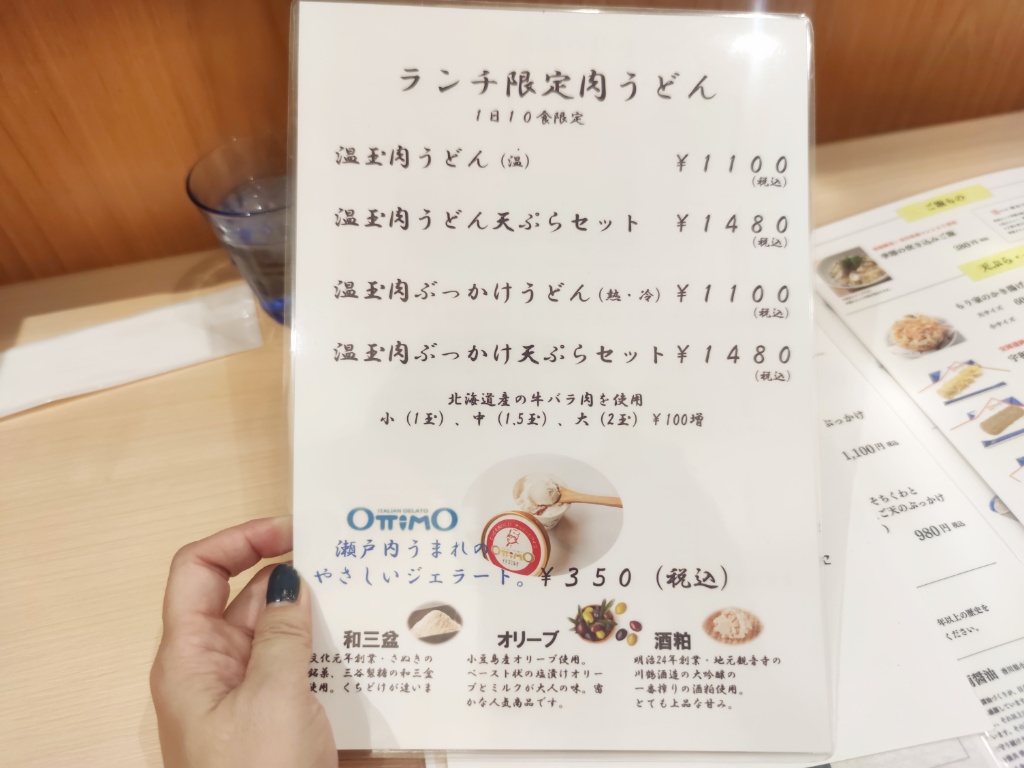 ランチ限定肉うどん
1日10食限定
温玉肉うどん(温) ¥1100
(税込)
温玉肉うどん天ぷらセット ¥1480
(税込)
温玉肉ぶっかけうどん(熱・冷) ¥1100
(税込)
温玉肉ぶっかけ天ぷらセット ¥1480
(税込)
北海道産の牛バラ肉を使用
小(1玉)、中(1.5玉)、大(2玉)¥100増
ITALIAN GELATO
OTTIMO
瀬戸内うまれの
やさしいジェラート。¥350(税込)
OTTIMO
和三盆
文化元年創業・さぬきの
銘菓、三谷製糖の和三盆
使用。くちどけが違いま
オリーブ
小豆島産オリーブ使用。
ペースト状の塩漬けオリー
ブとミルクが大人の味。密
かな人気商品です。
酒粕
明治24年創業・地元観音寺の
川鶴酒造の大吟醸の
一番搾りの酒粕使用。
とても上品な甘み。
ご飯もの
季節の炊き込みご飯
380円
天ぷら・
もり家のかき揚げ
大サイズ
小サイズ
ぶっかけ
1,100円 税込
そちくわと
ご天のぶっかけ
980円 税込
年以上の歴史を
ください。
醤油